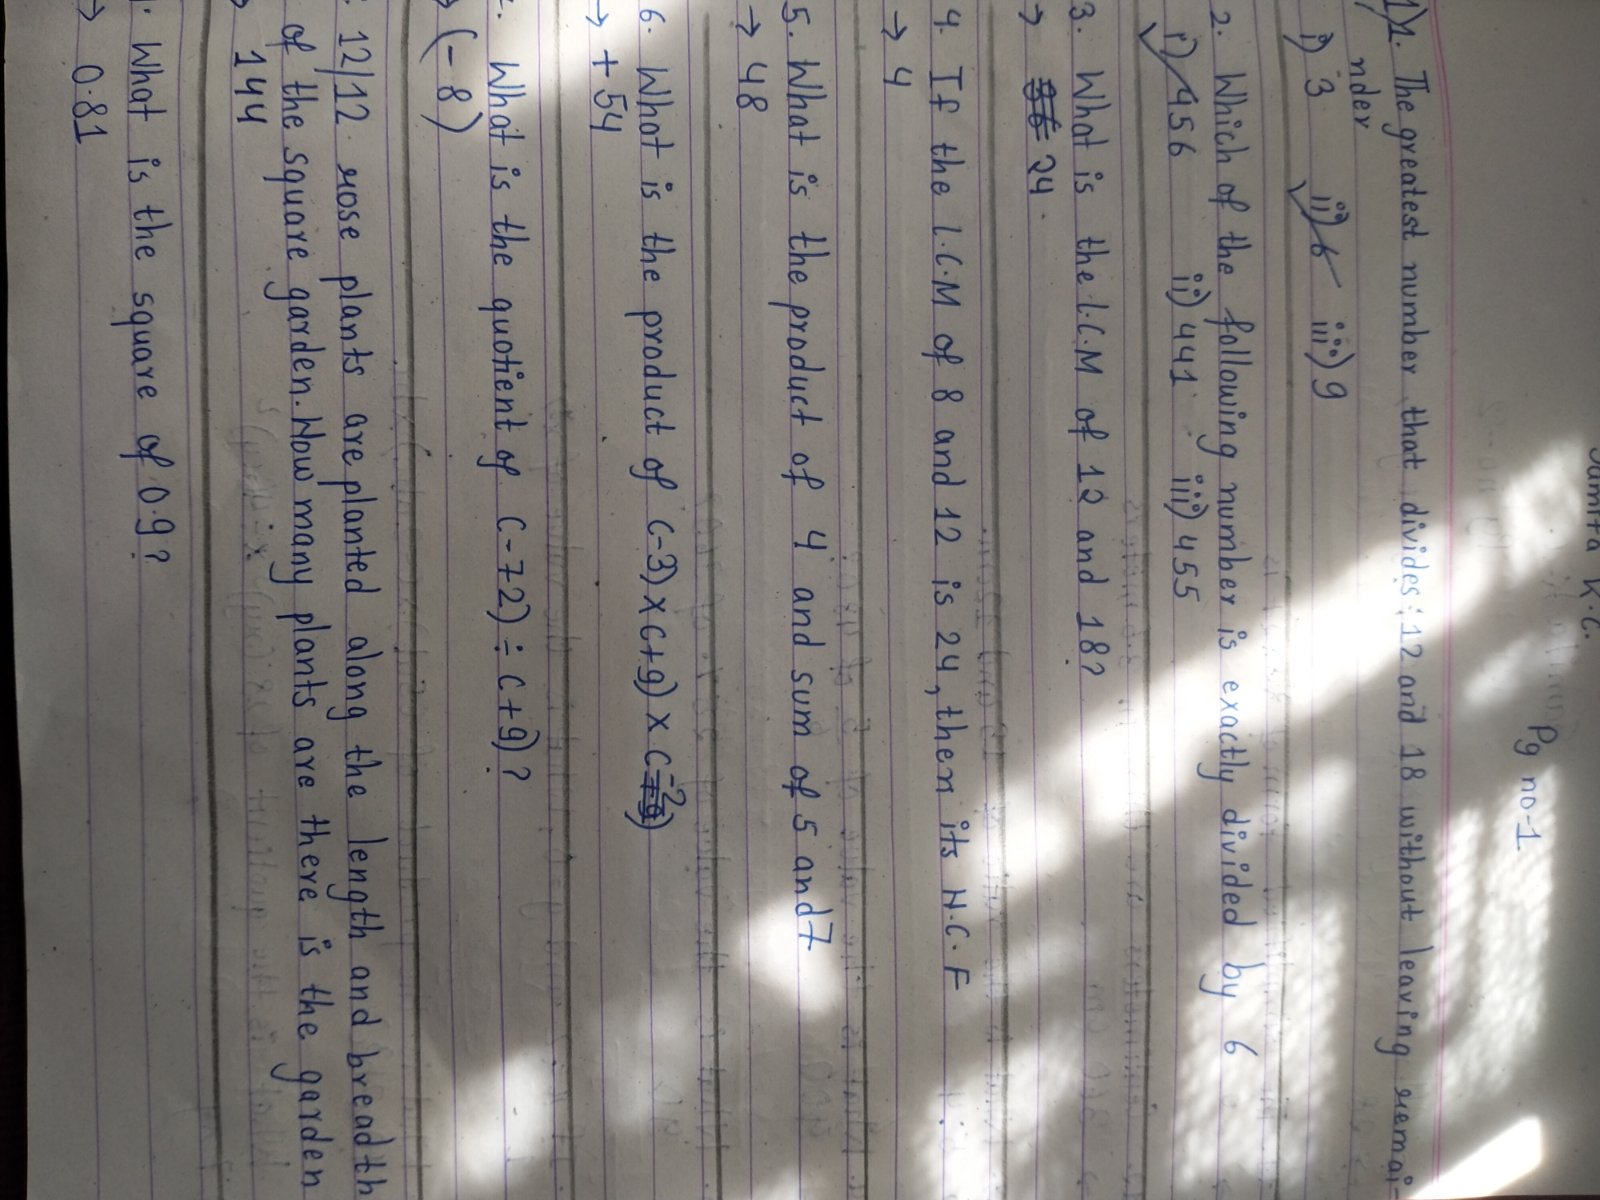 K.C.
Pg no-1
1. The greatest number that divides 12 and 18 without leaving remai-
nder
i) 3 ii) 6 iii) 9
2. Which of the following number is exactly divided by 6
i) 456 ii) 441 iii) 455
3. What is the L.C.M of 12 and 18?
→ 24
4. If the L.C.M of 8 and 12 is 24, then its H.C.F
→ 4
5. What is the product of 4 and sum of 5 and 7
→ 48
6. What is the product of (-3) x (+9) x (-2)
→ + 54
What is the quotient of (-72) ÷ (+9)?
(-8)
12/12 rose plants are planted along the length and breadth
of the square garden. How many plants are there is the garden
→ 144
What is the square of 0.9?
→ 0.81